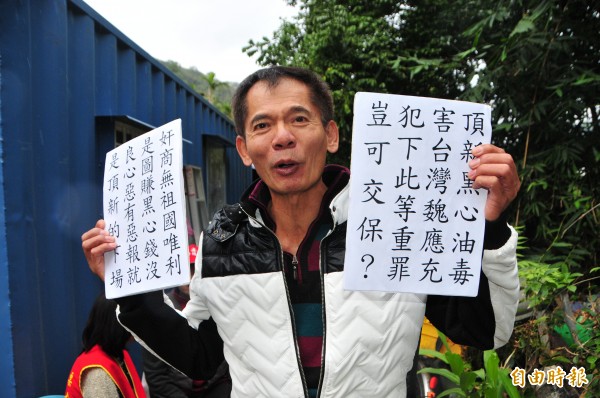 奸商無祖國唯利
是圖賺黑心錢沒
良心惡有惡報就
是頂新的下場
頂新黑心油毒
害台灣魏應充
犯下此等重罪
豈可交保？
自由時報